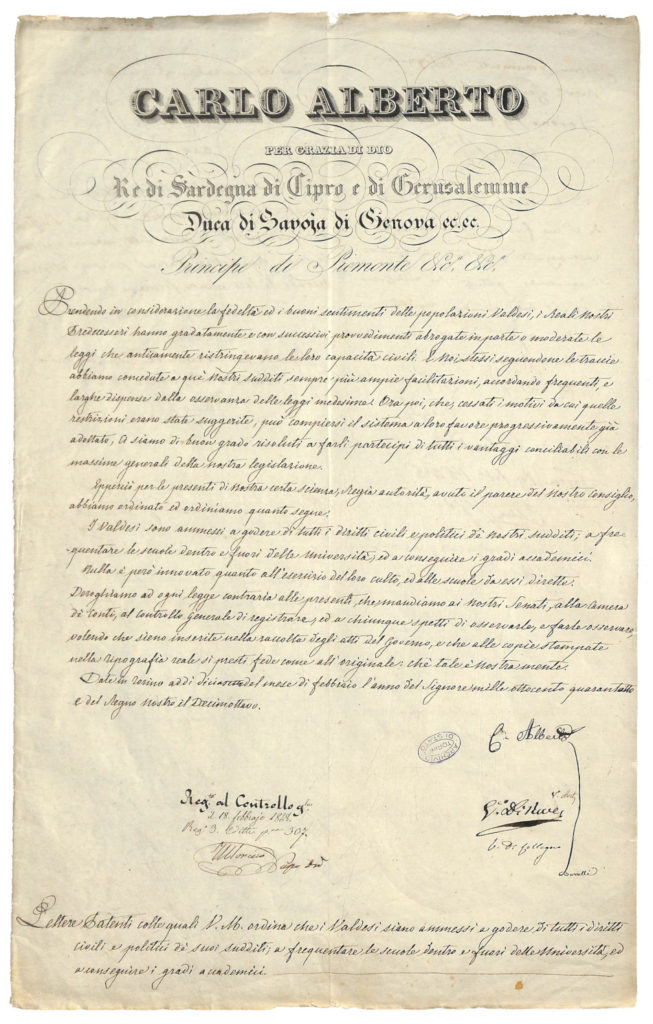 CARLO ALBERTO
PER GRAZIA DI DIO
Re di Sardegna di Cipro e di Gerusalemme
Duca di Savoja di Genova ec. ec.
Principe di Piemonte &c.ª &c.ª
Prendendo in considerazione la fedeltà ed i buoni sentimenti delle popolazioni Valdesi, i Reali Nostri
Predecessori hanno gradatamente e con successivi provvedimenti abrogate in parte o moderate le
leggi che anticamente ristringevano le loro capacità civili. E Noi stessi seguendone le traccie
abbiamo concedute a que' Nostri sudditi sempre più ampie facilitazioni, accordando frequenti, e
larghe dispense dalla osservanza delle leggi medesime. Ora poi, che, cessati i motivi da cui quelle
restrizioni erano state suggerite, può compiersi il sistema a loro favore progressivamente già
adottato, Ci siamo di buon grado risoluti a farli partecipi di tutti i vantaggi conciliabili con le
massime generali della nostra legislazione.
Epperciò per le presenti di Nostra certa scienza, Regia autorità, avuto il parere del Nostro Consiglio,
abbiamo ordinato ed ordiniamo quanto segue:
I Valdesi sono ammessi a godere di tutti i diritti civili e politici de' Nostri sudditi; a fre-
-quentare le scuole dentro e fuori delle Università, ed a conseguire i gradi accademici.
Nulla è però innovato quanto all'esercizio del loro culto, ed alle scuole da essi dirette.
Deroghiamo ad ogni legge contraria alle presenti, che mandiamo ai Nostri Senati, alla Camera
de' Conti, al Controllo Generale di registrare, ed a chiunque spetti di osservarle, e farle osservare,
volendo che sieno inserite nella raccolta degli atti del Governo, e che alle copie stampate
nella tipografia reale si presti fede come all'originale: chè tale è nostra mente.
Date in Torino addì diciasette del mese di febbraio l'anno del Signore mille ottocento quarantotto
e del Regno Nostro il Decimottavo.
C. Alberto
ARCHIVIO DI STATO TORINO
Reg.to al Controllo g.le
il 18. febbrajo 1848.
Reg.º 3. Editti 307.
V. di Collegno
Lettere Patenti colle quali V. M. ordina che i Valdesi siano ammessi a godere di tutti i diritti
civili e politici de' suoi sudditi; a frequentare le scuole dentro e fuori delle Università, ed
a conseguire i gradi accademici.